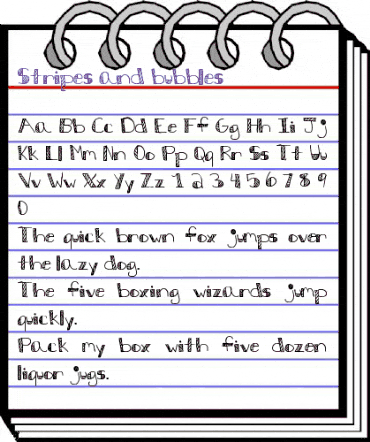 Stripes and bubbles
Aa Bb Cc Dd Ee Ff Gg Hh Ii Jj
Kk Ll Mm Nn Oo Pp Qq Rr Ss Tt Uu
Vv Ww Xx Yy Zz 1 2 3 4 5 6 7 8 9
0
The quick brown fox jumps over
the lazy dog.
The five boxing wizards jump
quickly.
Pack my box with five dozen
liquor jugs.